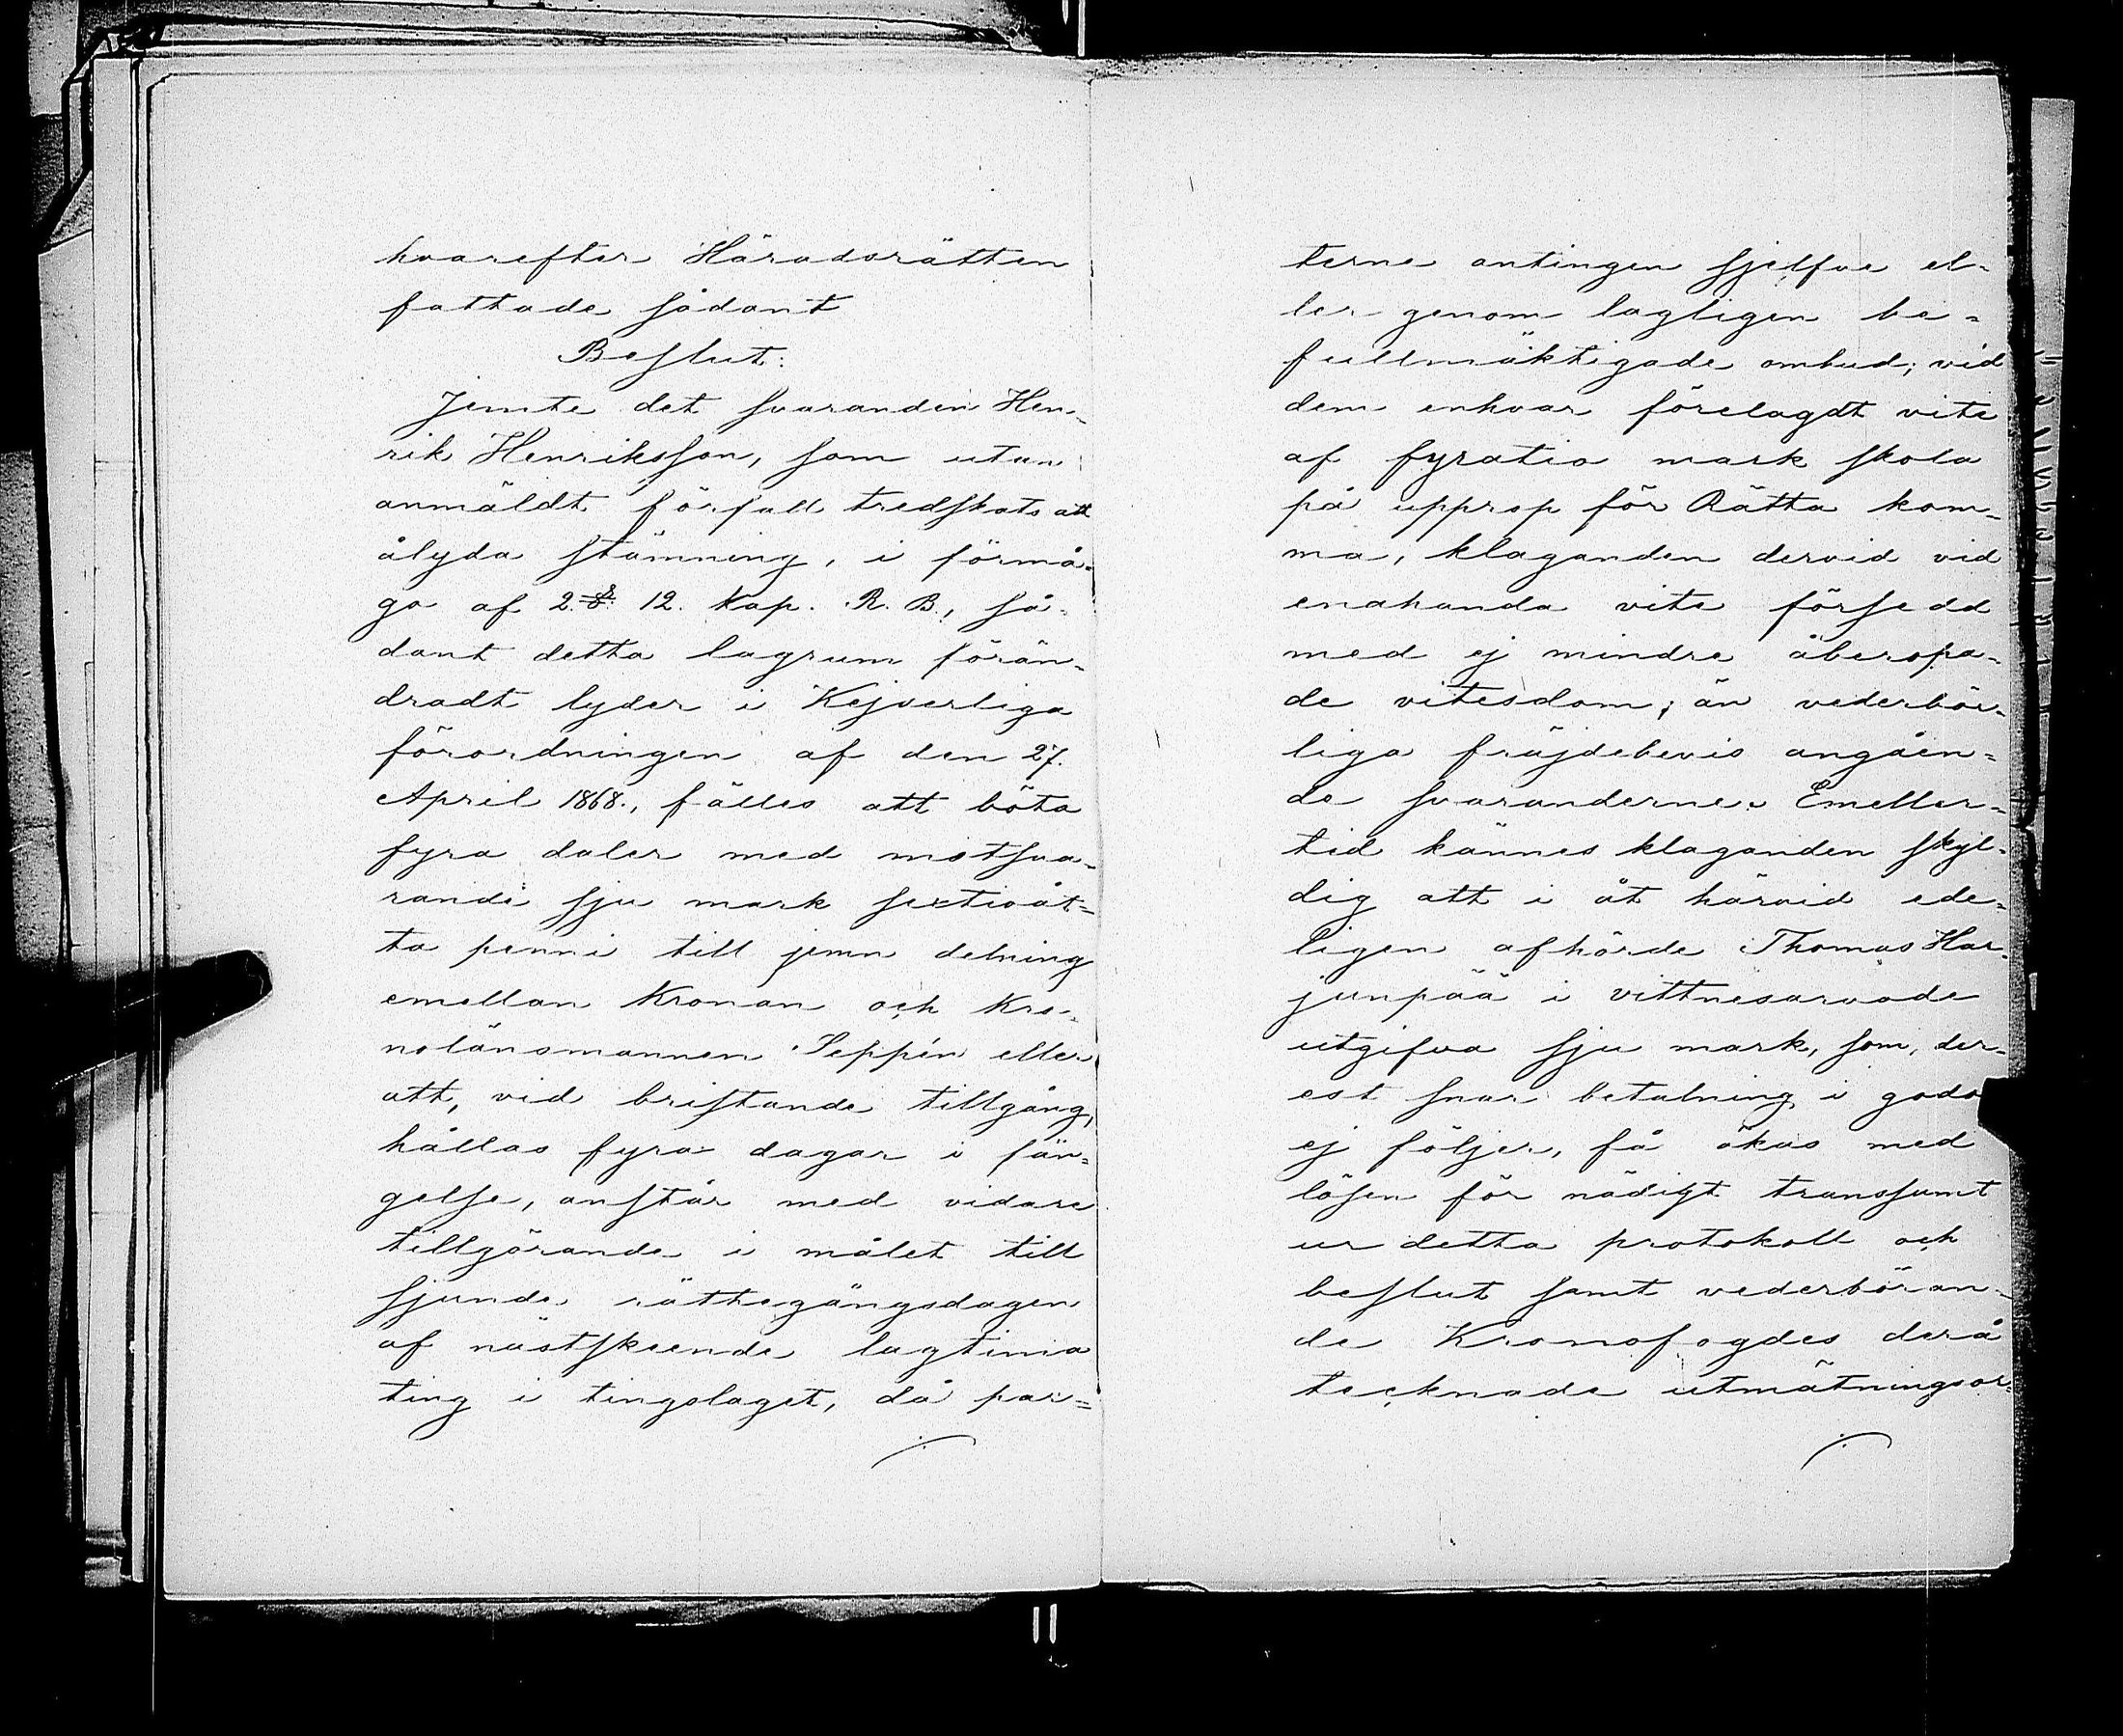 hvarefter Häradsrätten
fattade sådant
Beslut:
Jemte det svaranden Hen-
rik Henriksson, som utan
anmäldt förfall tredskats att
ålyda stämning, i förmå-
go af 2. §. 12. Kap. R. B., så-
dant detta lagrum förän-
dradt lyder i Kejserliga
förordningen af den 27.
April 1868., fälles att böta
fyra daler med motsva-
rande sju mark sextioåt-
ta penni till jemn delning
emellan Kronan och Kro-
nolänsmannen Seppén eller
att, vid bristande tillgång,
hållas fyra dagar i fän-
gelse, anstår med vidare
tillgörande i målet till
sjunde rättegångsdagen
af nästskeende lagtima
ting i tingslaget, då par-
terne antingen sjelfve el-
ler genom lagligen be-
fullmäktigade ombud, vid
dem enhvar förelagdt vite
af fyratio mark skola
på upprop för Rätta kom-
ma, klaganden dervid vid
enahanda vite försedd
med ej mindre åberopa-
de vitesdom, än vederbör-
liga fräjdebevis angåen-
de svaranderne. Emeller-
tid kännes klaganden skyl-
dig att i åt härvid ede-
ligen afhörde Thomas Har-
junpää i vittnesarvode
utgifva sju mark, som, der-
est snar betalning i godo
ej följer, få ökas med
lösen för nödigt transsumt
ur detta protokoll och
beslut samt vederböran-
de Kronofogdes derå
tecknade utmätningsor-